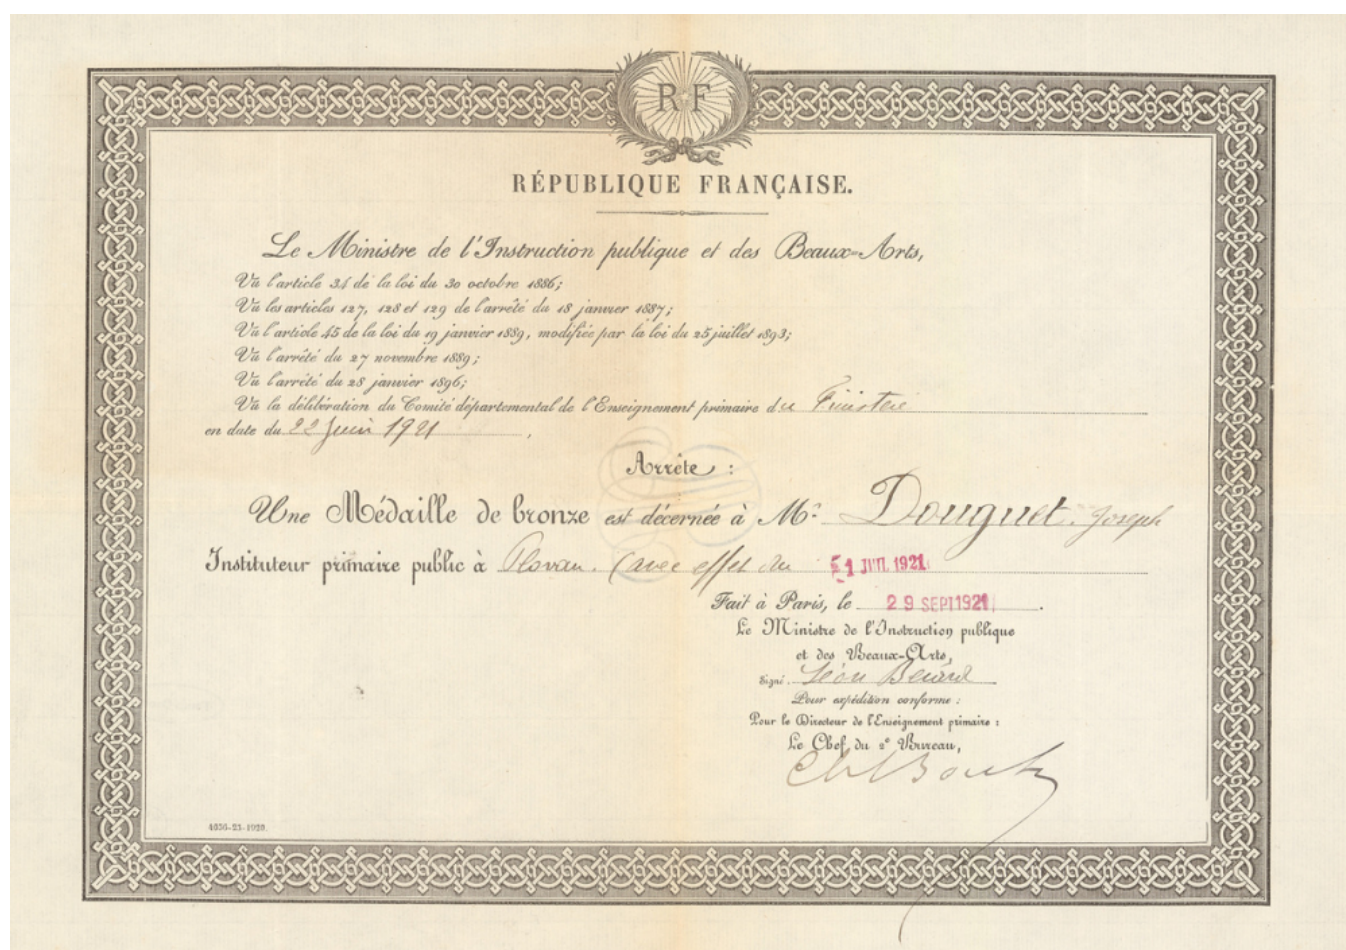 RF
RÉPUBLIQUE FRANÇAISE.
Le Ministre de l'Instruction publique et des Beaux-Arts,
Vu l'article 34 de la loi du 30 octobre 1886;
Vu les articles 127, 128 et 129 de l'arrêté du 18 janvier 1887;
Vu l'article 45 de la loi du 19 janvier 1889, modifiée par la loi du 25 juillet 1893;
Vu l'arrêté du 27 novembre 1889;
Vu l'arrêté du 28 janvier 1896;
Vu la délibération du Comité départemental de l'Enseignement primaire du Finistère
en date du 22 Juin 1921,
Arrête :
Une Médaille de bronze est décernée à Mr Douguet. Joseph
Instituteur primaire public à Plovan. (avec effet du 1 JUIL 1921
Fait à Paris, le 29 SEPT 1921.
Le Ministre de l'Instruction publique
et des Beaux-Arts,
Signé. Léon Bérard
Pour expédition conforme :
Pour le Directeur de l'Enseignement primaire :
Le Chef du 2e Bureau,
4036-23-1920.